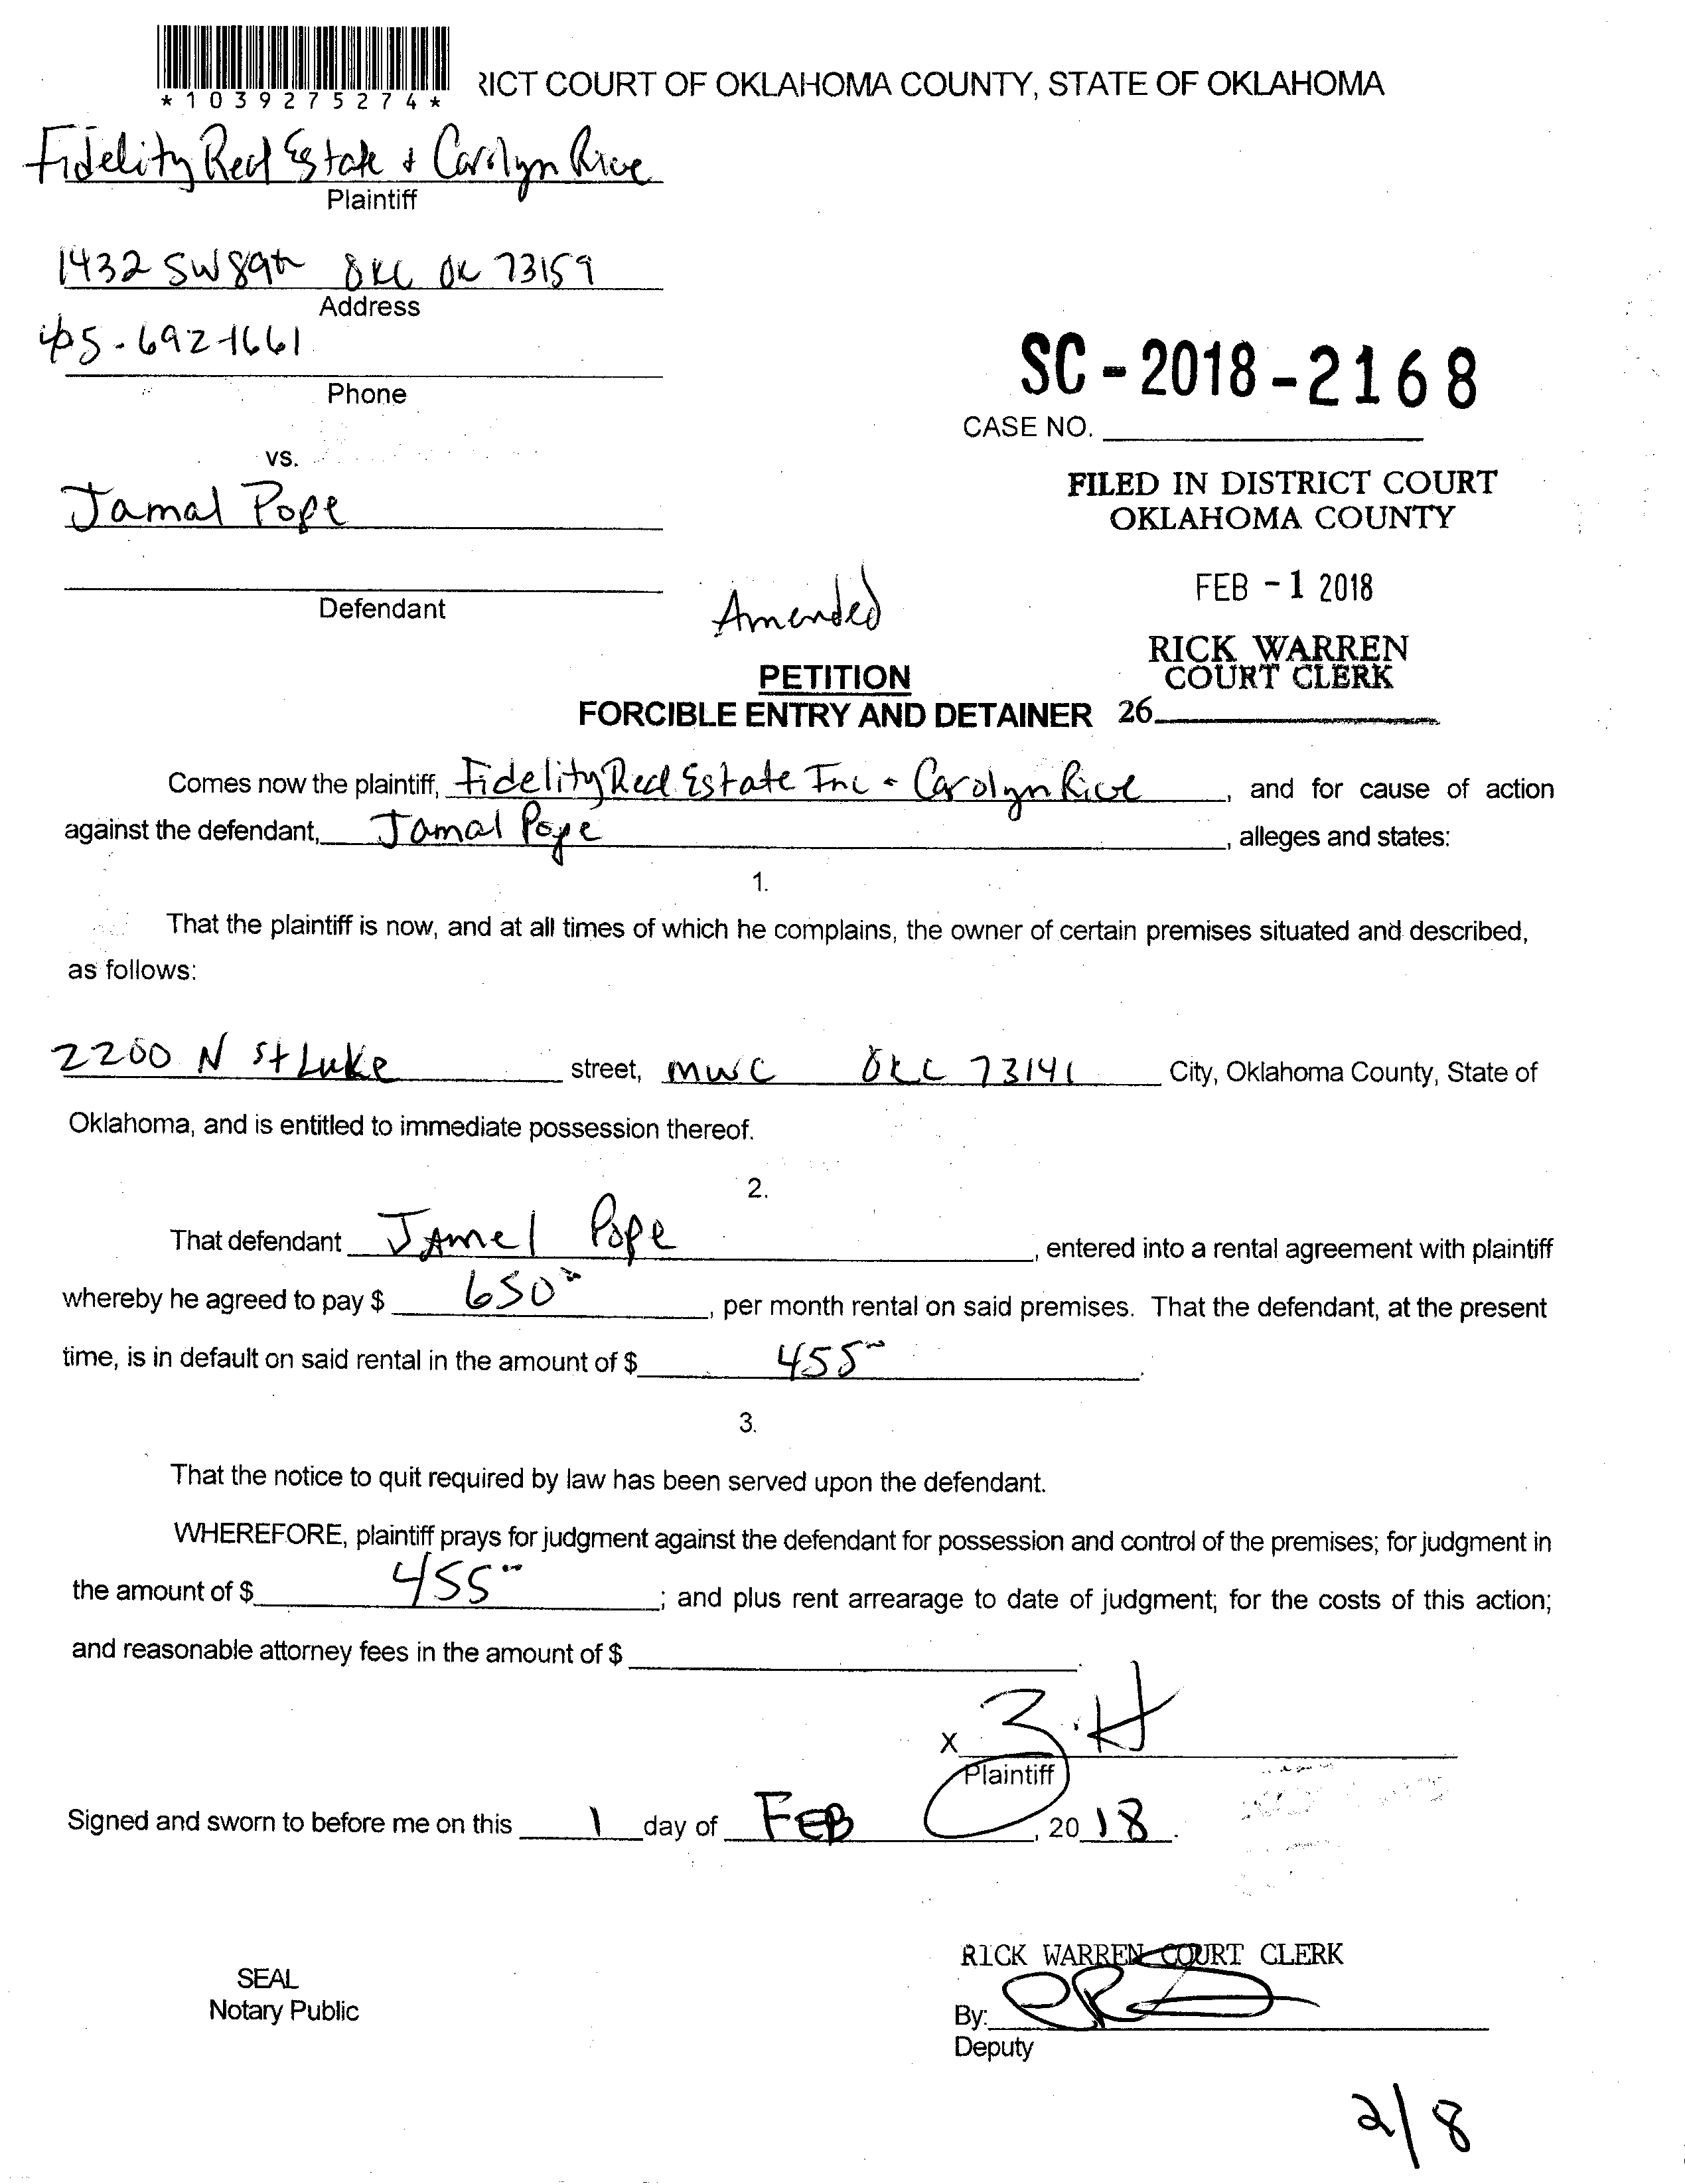 *1039275274*
RICT COURT OF OKLAHOMA COUNTY, STATE OF OKLAHOMA
Fidelity Real Estate + Carolyn Rice
Plaintiff
1432 SW 89th OKC OK 73159
Address
405-692-1661
Phone
SC-2018-2168
CASE NO.
vs.
Jamal Pope
FILED IN DISTRICT COURT
OKLAHOMA COUNTY
FEB -1 2018
Defendant
Amended
RICK WARREN
COURT CLERK
PETITION
FORCIBLE ENTRY AND DETAINER 26
Comes now the plaintiff, Fidelity Real Estate Inc - Carolyn Rice, and for cause of action
against the defendant, Jamal Pope, alleges and states:
1.
That the plaintiff is now, and at all times of which he complains, the owner of certain premises situated and described,
as follows:
2200 N St Luke street, MWC OKC 73141 City, Oklahoma County, State of
Oklahoma, and is entitled to immediate possession thereof.
2.
That defendant Jamel Pope, entered into a rental agreement with plaintiff
whereby he agreed to pay $ 650, per month rental on said premises. That the defendant, at the present
time, is in default on said rental in the amount of $ 455.
3.
That the notice to quit required by law has been served upon the defendant.
WHEREFORE, plaintiff prays for judgment against the defendant for possession and control of the premises; for judgment in
the amount of $ 455; and plus rent arrearage to date of judgment; for the costs of this action;
and reasonable attorney fees in the amount of $.
X
Plaintiff
Signed and sworn to before me on this 1 day of FEB, 2018.
RICK WARREN COURT CLERK
SEAL
Notary Public
By:
Deputy
2/8